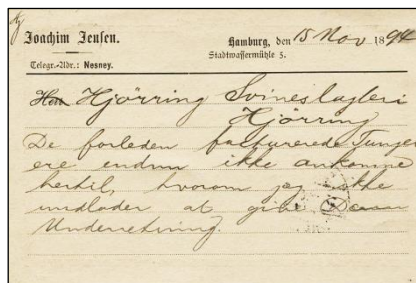 Joachim Jensen.
Hamburg, den 15 Nov 1894
Stadtwassermühle 5.
Telegr.-Adr.: Nesney.
Herrn Hjörring Svineslagteri
Hjörring
De forleden fakturerede Tunger
ere endnu ikke ankomne
hertil, hvorom jeg ikke
undlader at give Dem
Underretning.